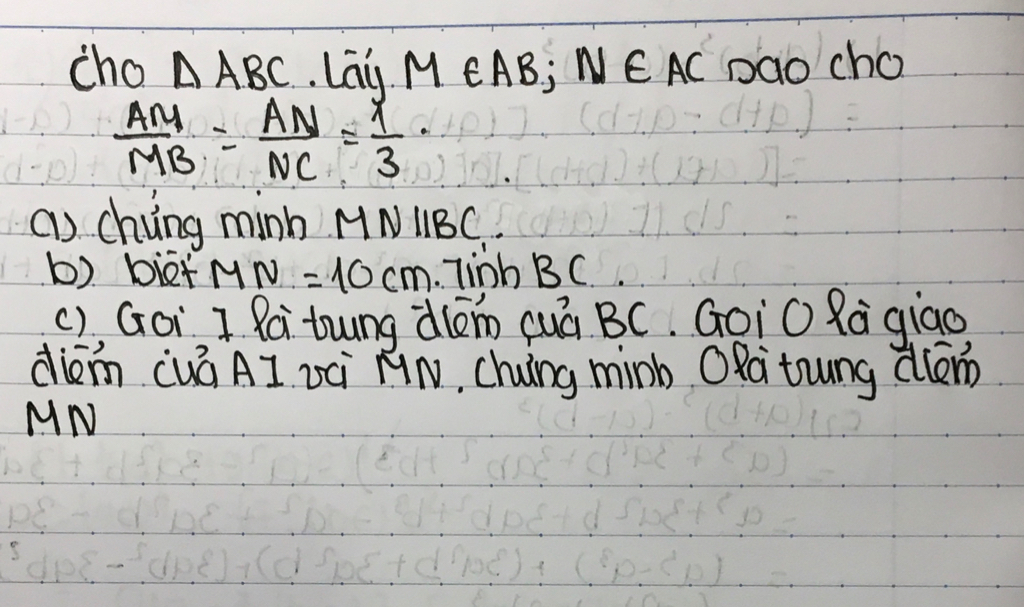 Cho Δ ABC. Lấy M ∈ AB; N ∈ AC sao cho
AM/MB = AN/NC = 1/3.
a) chứng minh MN // BC.
b) biết MN = 10 cm. Tính BC.
c) Gọi I là trung điểm của BC. Gọi O là giao
điểm của AI và MN. Chứng minh O là trung điểm
MN